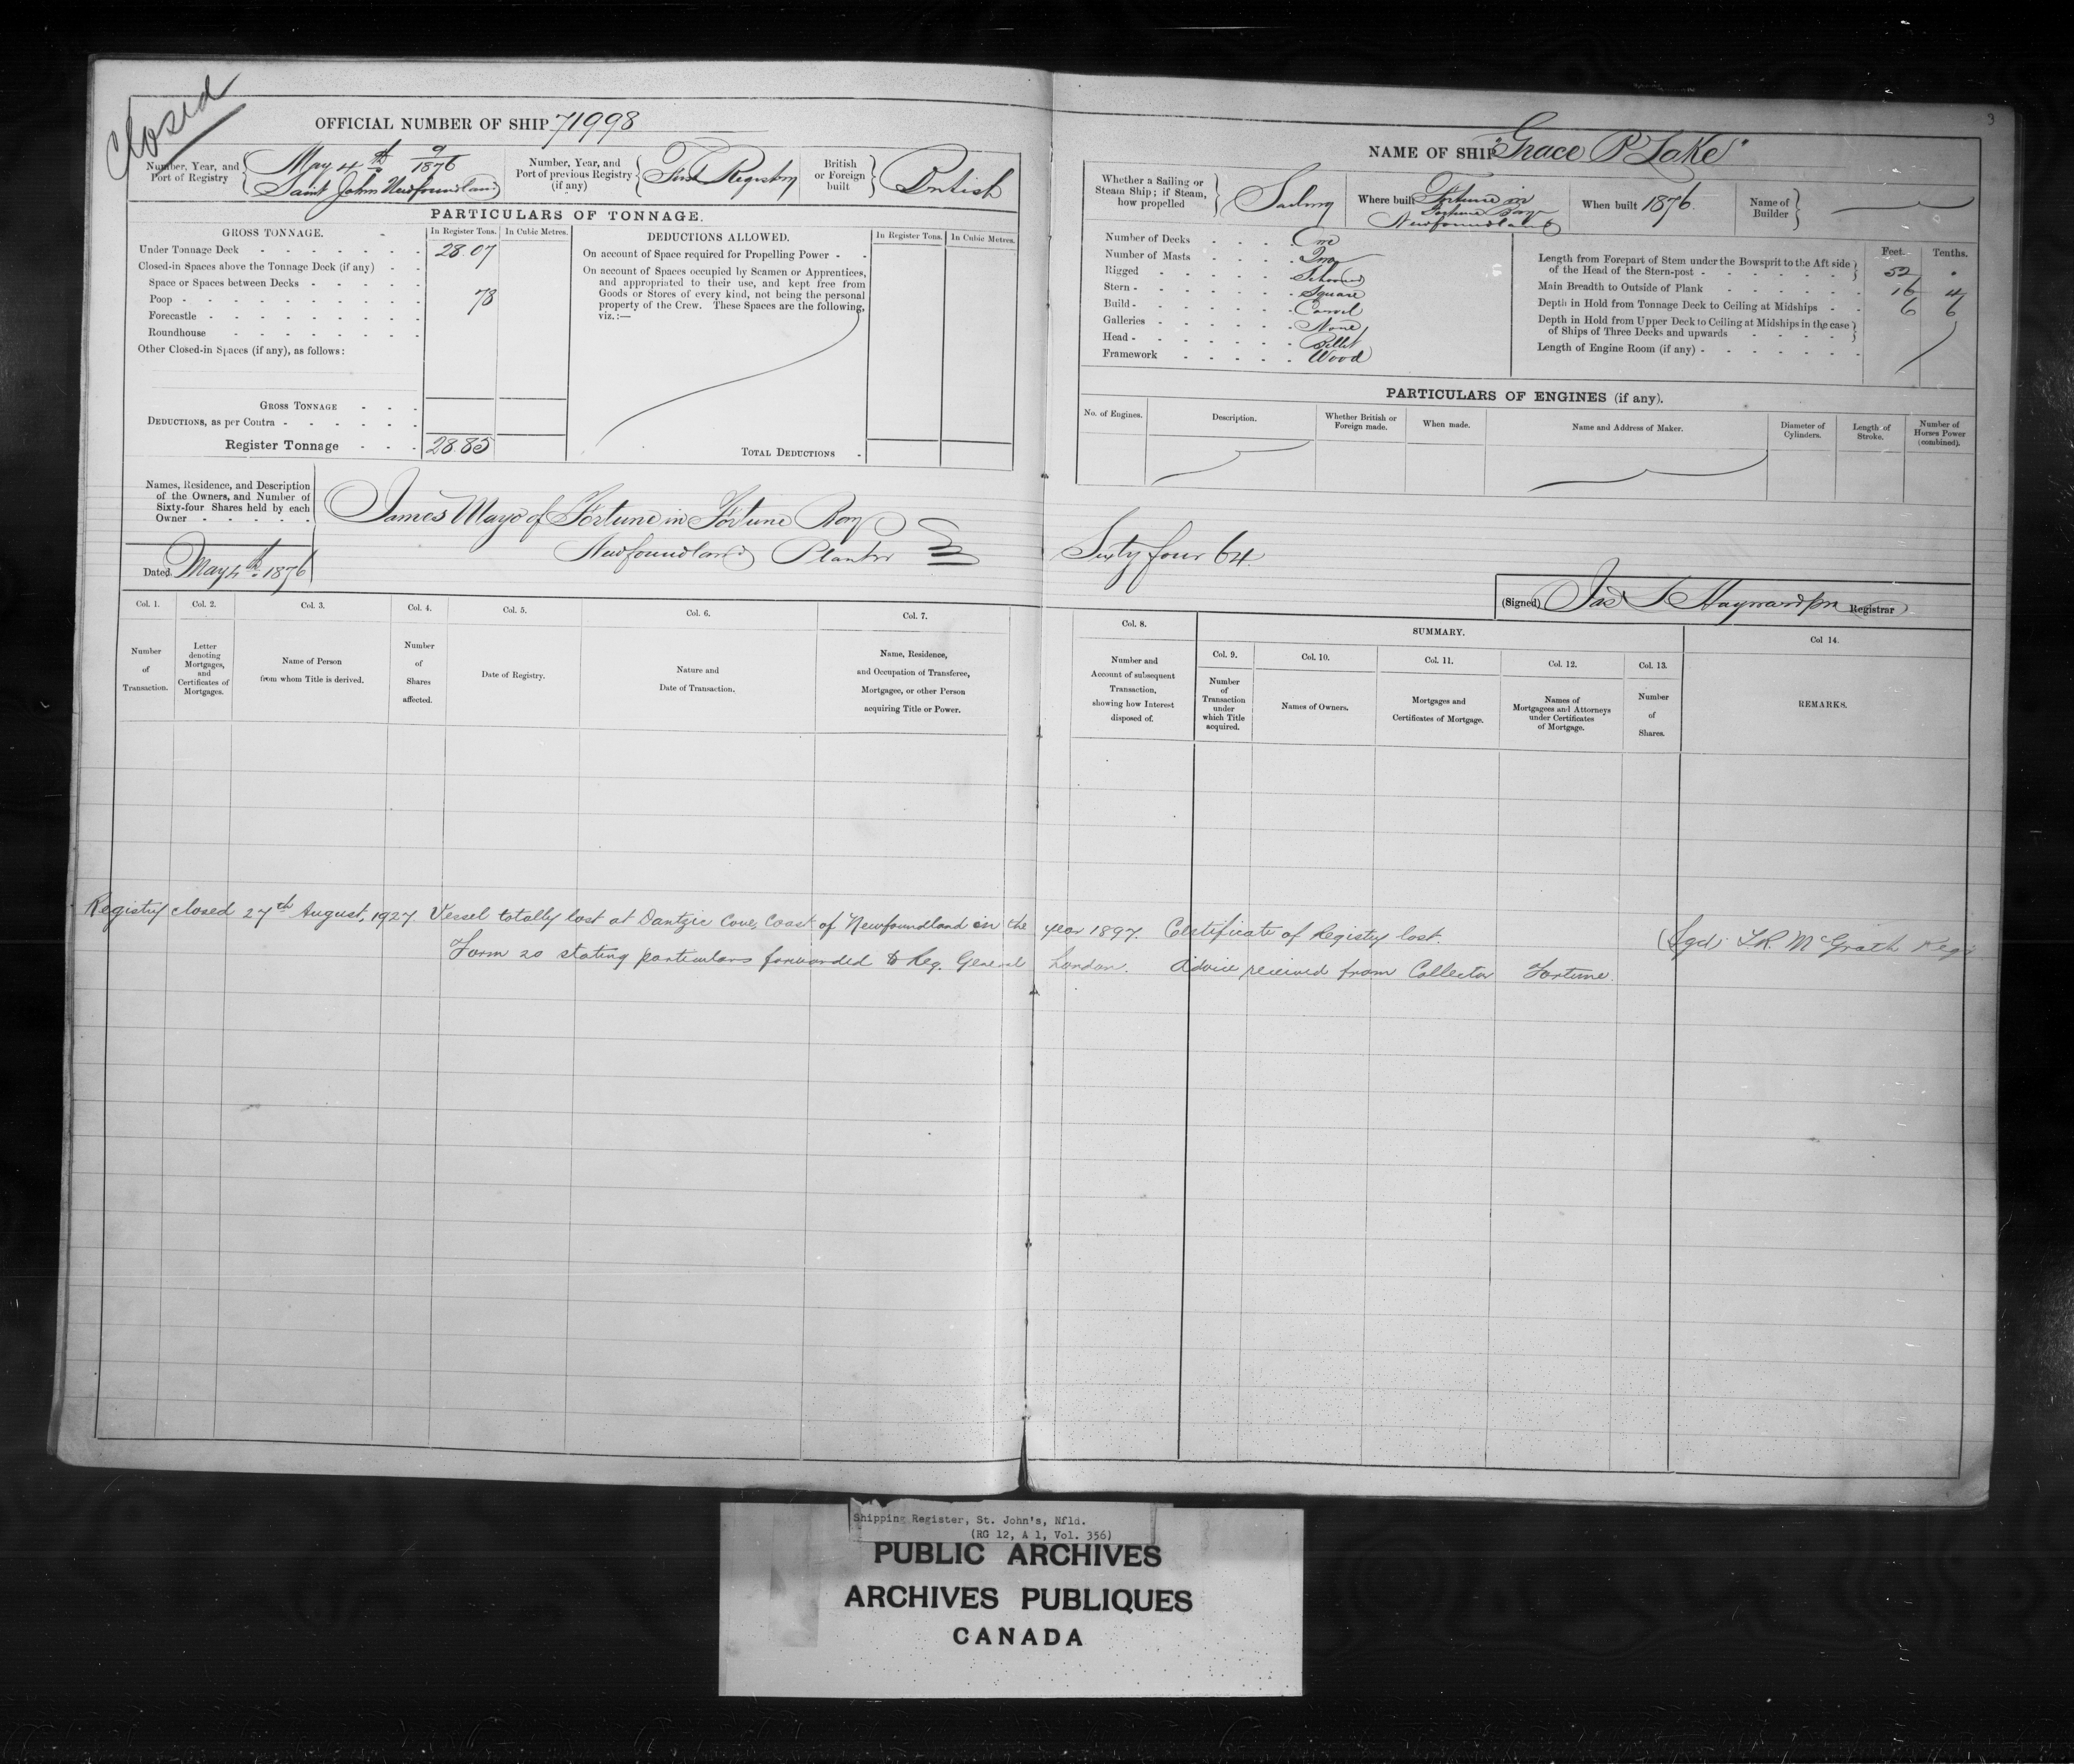 Closed
3
OFFICIAL NUMBER OF SHIP 71998
Number, Year, and Port of Registry { May 4th 9/1876 Saint Johns Newfoundland
Number, Year, and Port of previous Registry (if any) { First Registry
British or Foreign built } British
PARTICULARS OF TONNAGE.
GROSS TONNAGE. In Register Tons. In Cubic Metres.
Under Tonnage Deck 28.07
Closed-in Spaces above the Tonnage Deck (if any)
Space or Spaces between Decks
Poop 78
Forecastle
Roundhouse
Other Closed-in Spaces (if any), as follows:
GROSS TONNAGE
DEDUCTIONS, as per Contra
Register Tonnage 28.85
DEDUCTIONS ALLOWED. In Register Tons. In Cubic Metres.
On account of Space required for Propelling Power
On account of Spaces occupied by Seamen or Apprentices,
and appropriated to their use, and kept free from
Goods or Stores of every kind, not being the personal
property of the Crew. These Spaces are the following,
viz.:—
TOTAL DEDUCTIONS
NAME OF SHIP "Grace P Lake"
Whether a Sailing or Steam Ship; if Steam, how propelled } Sailing
Where built Fortune in Fortune Bay Newfoundland
When built 1876.
Name of Builder }
Number of Decks One
Number of Masts Two
Rigged Schooner
Stern Square
Build Carvel
Galleries None
Head Billet
Framework Wood
Feet. Tenths.
Length from Forepart of Stem under the Bowsprit to the Aft side of the Head of the Stern-post 52 .
Main Breadth to Outside of Plank 16 4
Depth in Hold from Tonnage Deck to Ceiling at Midships 6 6
Depth in Hold from Upper Deck to Ceiling at Midships in the case of Ships of Three Decks and upwards
Length of Engine Room (if any)
PARTICULARS OF ENGINES (if any).
No. of Engines. Description. Whether British or Foreign made. When made. Name and Address of Maker. Diameter of Cylinders. Length of Stroke. Number of Horses Power (combined).
Names, Residence, and Description
of the Owners, and Number of
Sixty-four Shares held by each
Owner
James Mayo of Fortune in Fortune Bay
Newfoundland Planter Sixty four 64
Dated May 4th 1876
(Signed) Jas S Hayward Registrar
Col. 1. Col. 2. Col. 3. Col. 4. Col. 5. Col. 6. Col. 7. Col. 8. SUMMARY. Col 14.
Col. 9. Col. 10. Col. 11. Col. 12. Col. 13.
Number of Transaction.
Letter denoting Mortgages, and Certificates of Mortgages.
Name of Person from whom Title is derived.
Number of Shares affected.
Date of Registry.
Nature and Date of Transaction.
Name, Residence, and Occupation of Transferee, Mortgagee, or other Person acquiring Title or Power.
Number and Account of subsequent Transaction, showing how Interest disposed of.
Number of Transaction under which Title acquired.
Names of Owners.
Mortgages and Certificates of Mortgage.
Names of Mortgagees and Attorneys under Certificates of Mortgage.
Number of Shares.
REMARKS.
Registry closed 27th August, 1927. Vessel totally lost at Dantzic Cove, Coast of Newfoundland in the year 1897. Certificate of Registry lost. (Sgd) L.R. McGrath Regi
Form 20 stating particulars forwarded to Reg. General London. Advice received from Collector Fortune.
Shipping Register, St. John's, Nfld.
(RG 12, A 1, Vol. 356)
PUBLIC ARCHIVES
ARCHIVES PUBLIQUES
CANADA